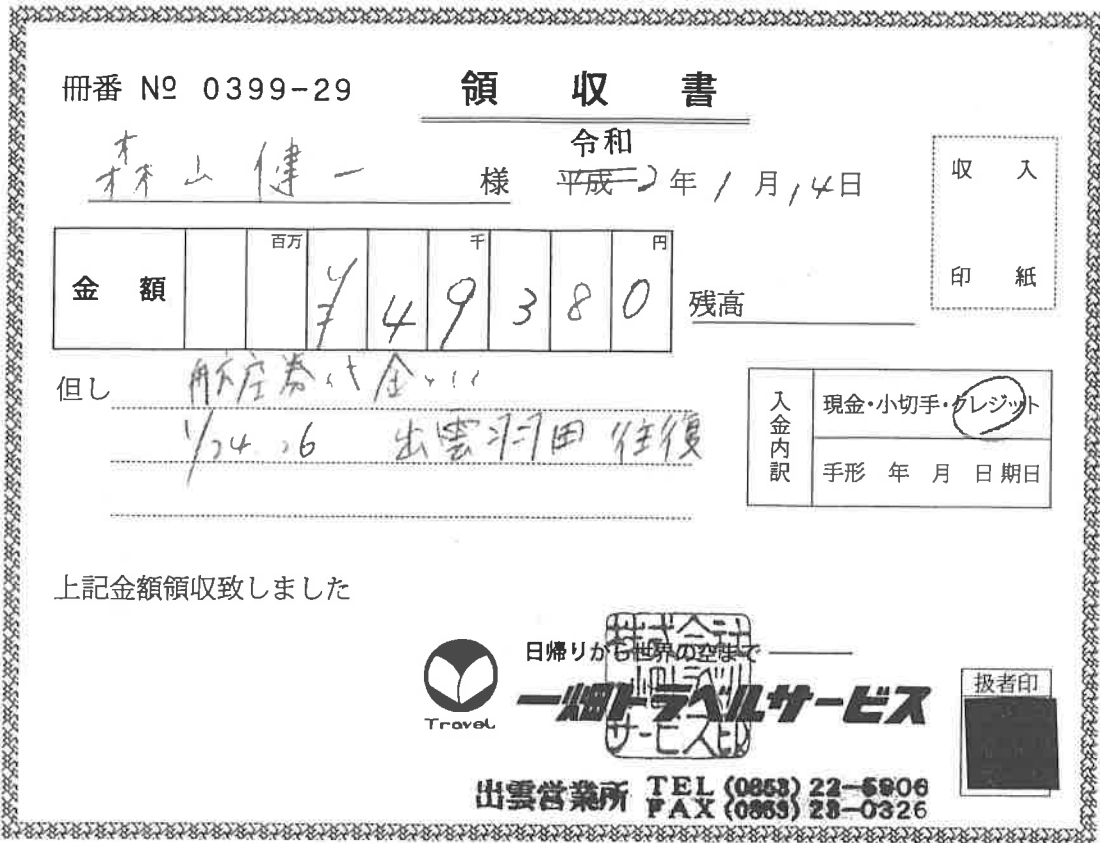 冊番 № 0399-29
領収書
森山健一 様
令和
平成 2年1月14日
収入
印紙
金額 百万 千 円
¥49380
残高
但し 航空券代金
1/24.26 出雲羽田 往復
入金内訳
現金・小切手・クレジット
手形 年 月 日期日
上記金額領収致しました
日帰りから世界の空まで
Travel
一畑トラベルサービス
扱者印
出雲営業所 TEL (0853) 22-5806
FAX (0853) 23-0326